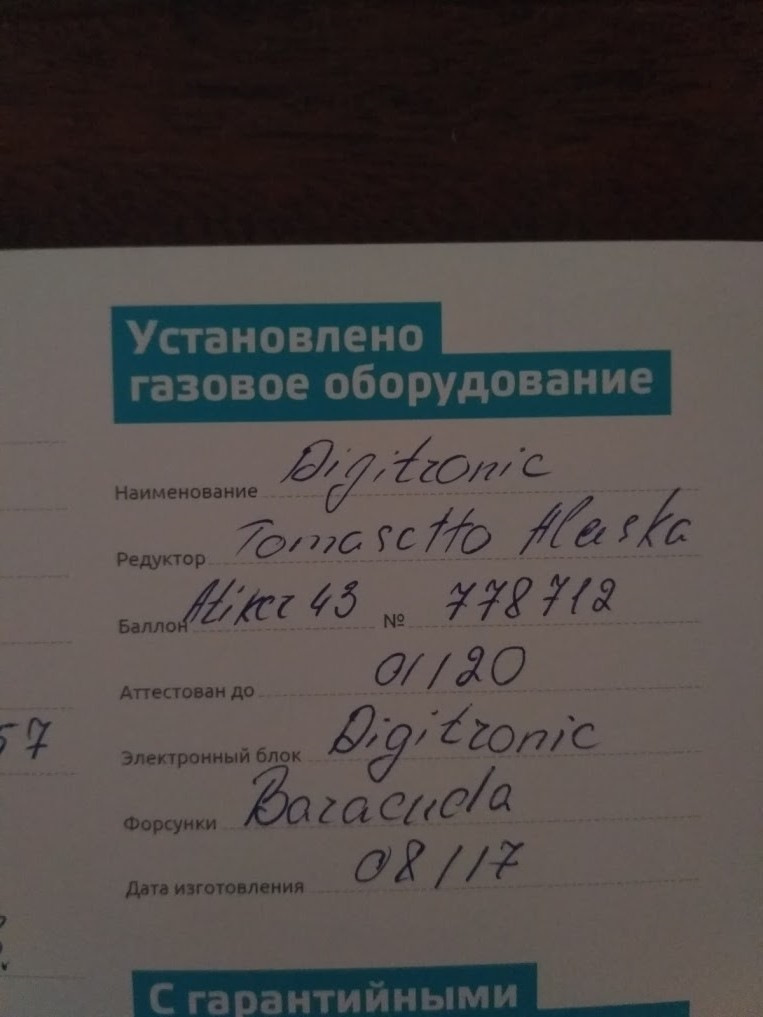 Установлено
газовое оборудование
Наименование Digitronic
Редуктор Tomasetto Alaska
Баллон Atiker 43 № 778712
Аттестован до 01/20
57
Электронный блок Digitronic
Форсунки Baracuda
Дата изготовления 08/17
С гарантийными